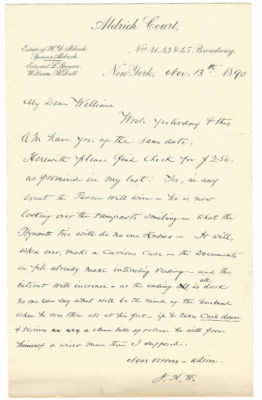 Aldrich Court,
Estate of H. D. Aldrich
Spencer Aldrich
Edward L. Spencer
William B. Dall
Nos 41.43 & 45 Broadway.
New York, Nov. 13th 1890
My Dear William
Wrote yesterday & this
AM have yrs of the same date.
Herewith please find check for $250.
as promised in my last. Yes, in any
event the Parson will win — he is now
looking over the ramparts smiling — what the
Plymouth trio will do no one knows — It will,
when over, make a curious case — the documents
on file already make interesting reading — and the
interest will increase — as the ending is all dark
no one can say what will be the mind of the husband
when he sees them all at his feet — if he takes Cash down
& receives a clean bill of release he will prove
himself a wiser man than I supposed.
Yours
J. H. W.